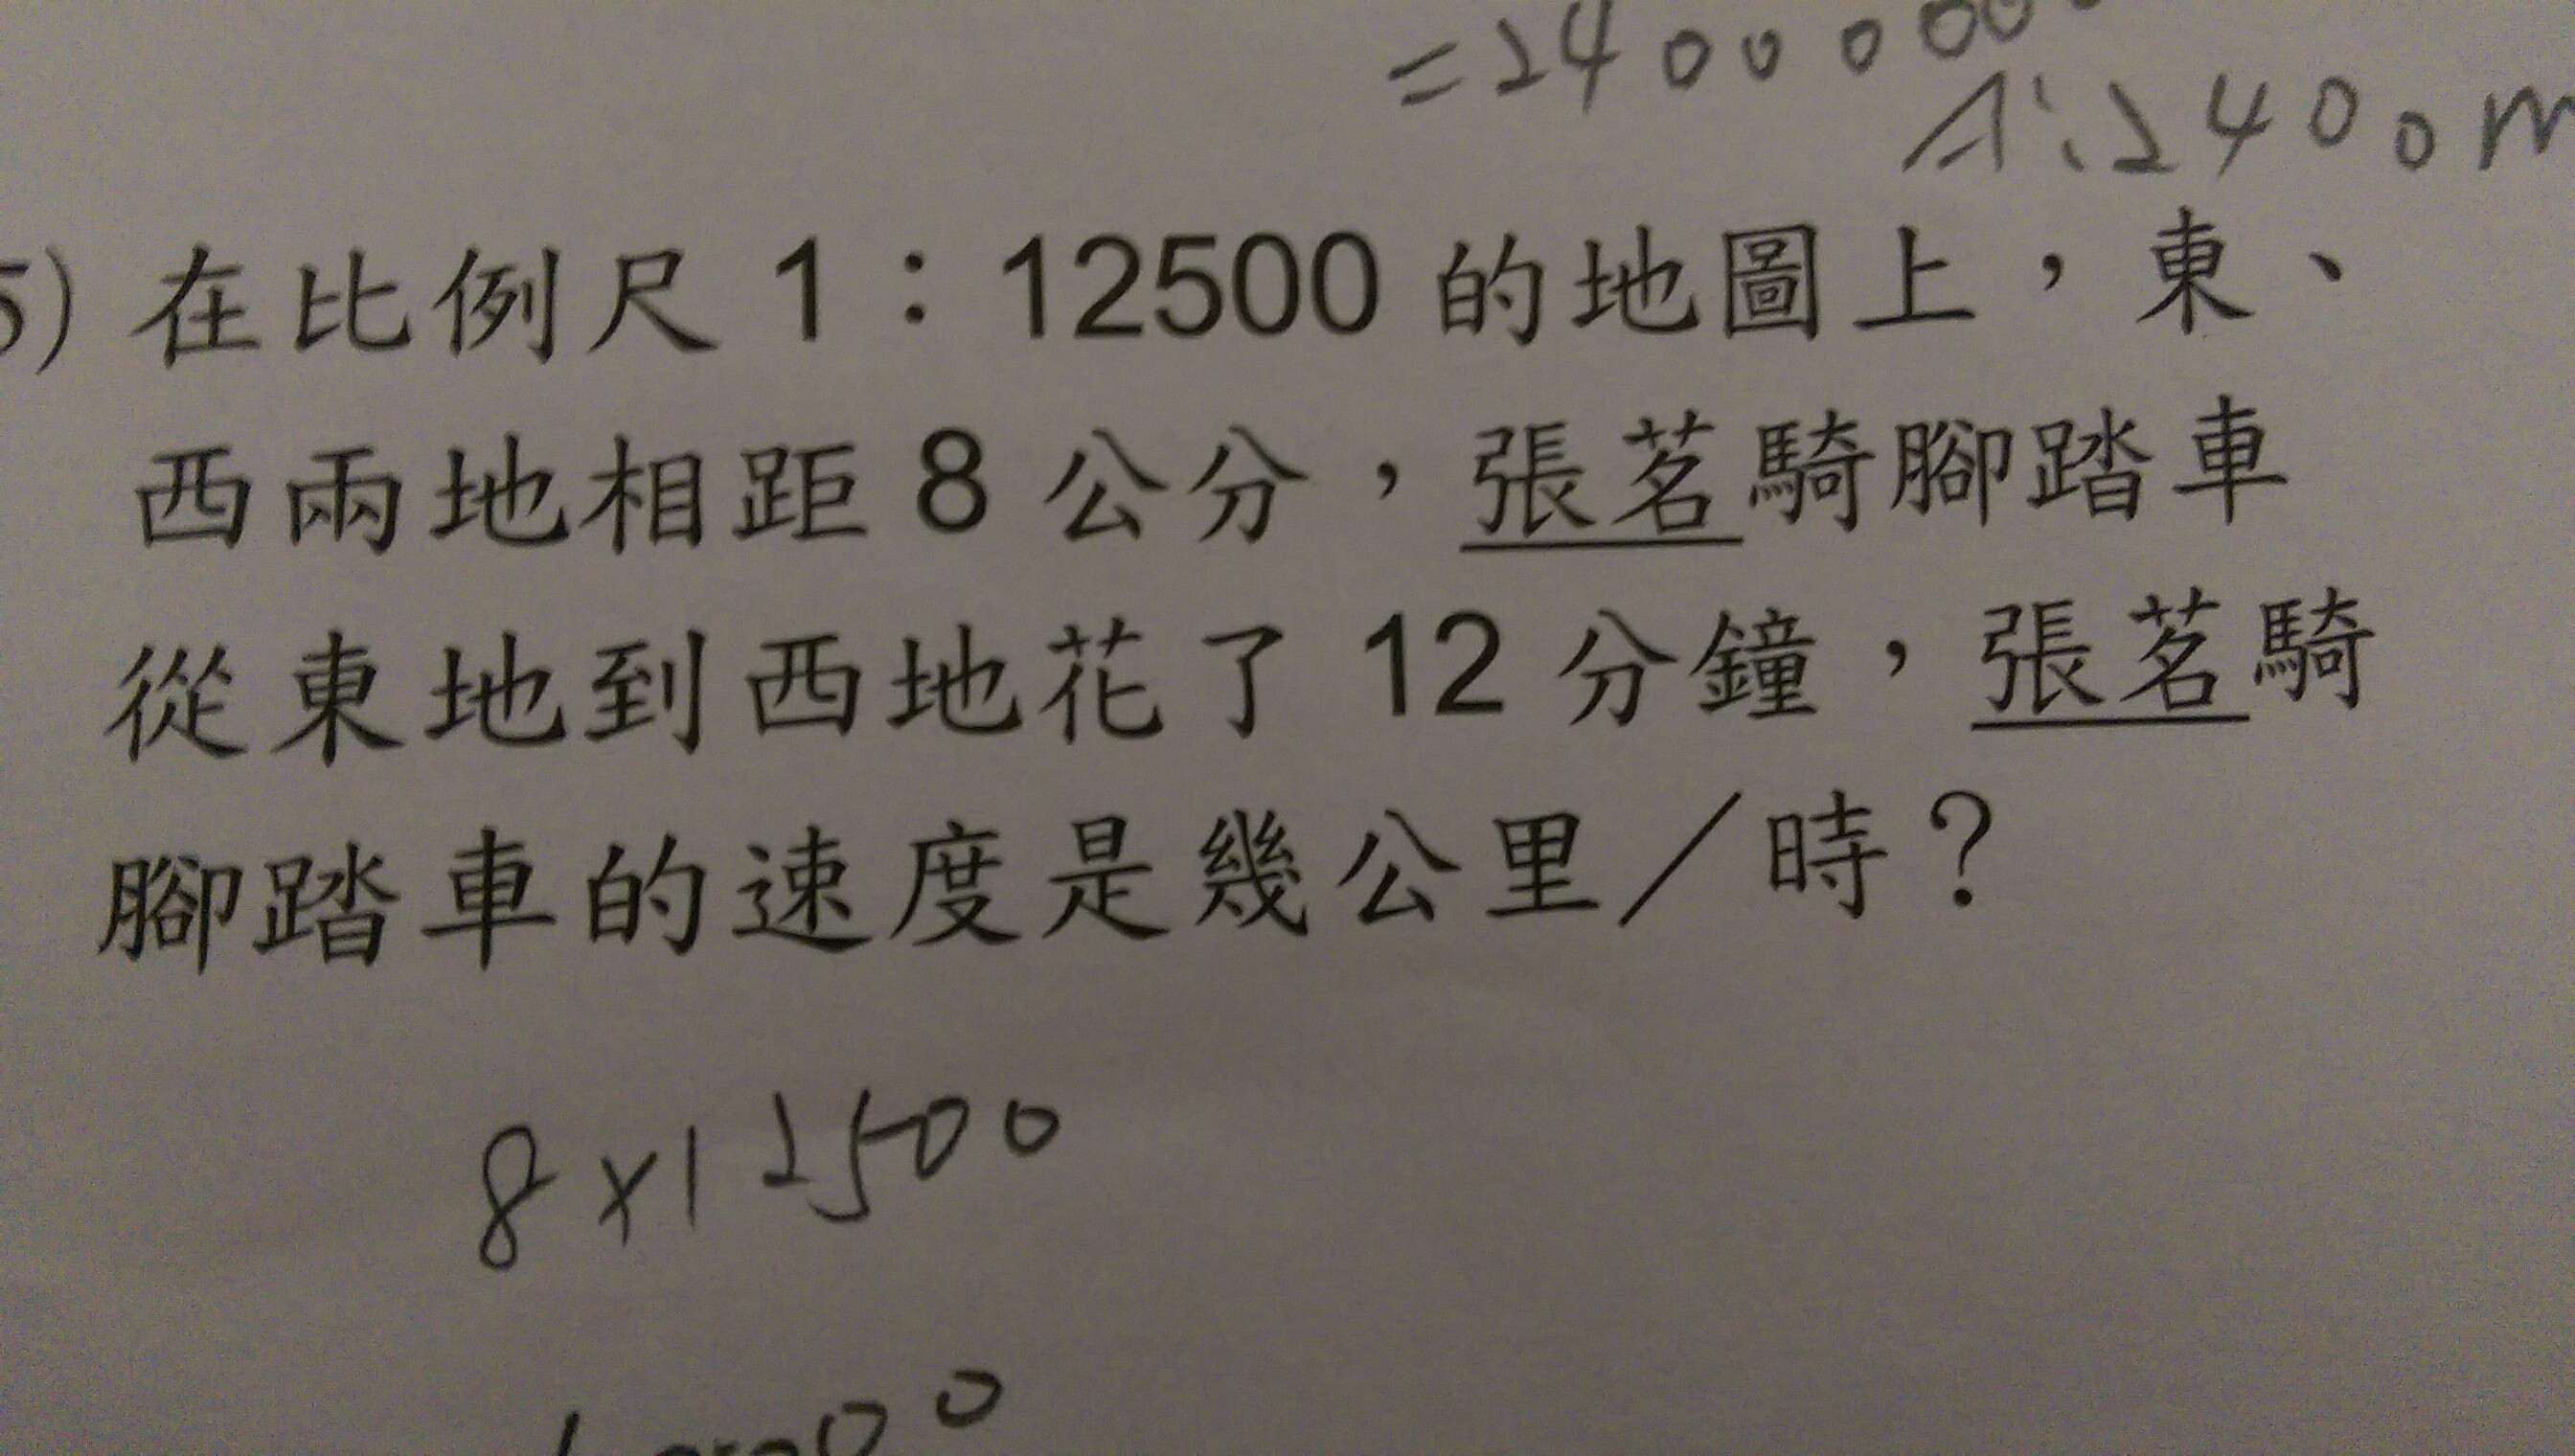 =2400000
A:2400m
5) 在比例尺 1：12500 的地圖上，東、
西兩地相距 8 公分，張茗騎腳踏車
從東地到西地花了 12 分鐘，張茗騎
腳踏車的速度是幾公里／時？
8×12500